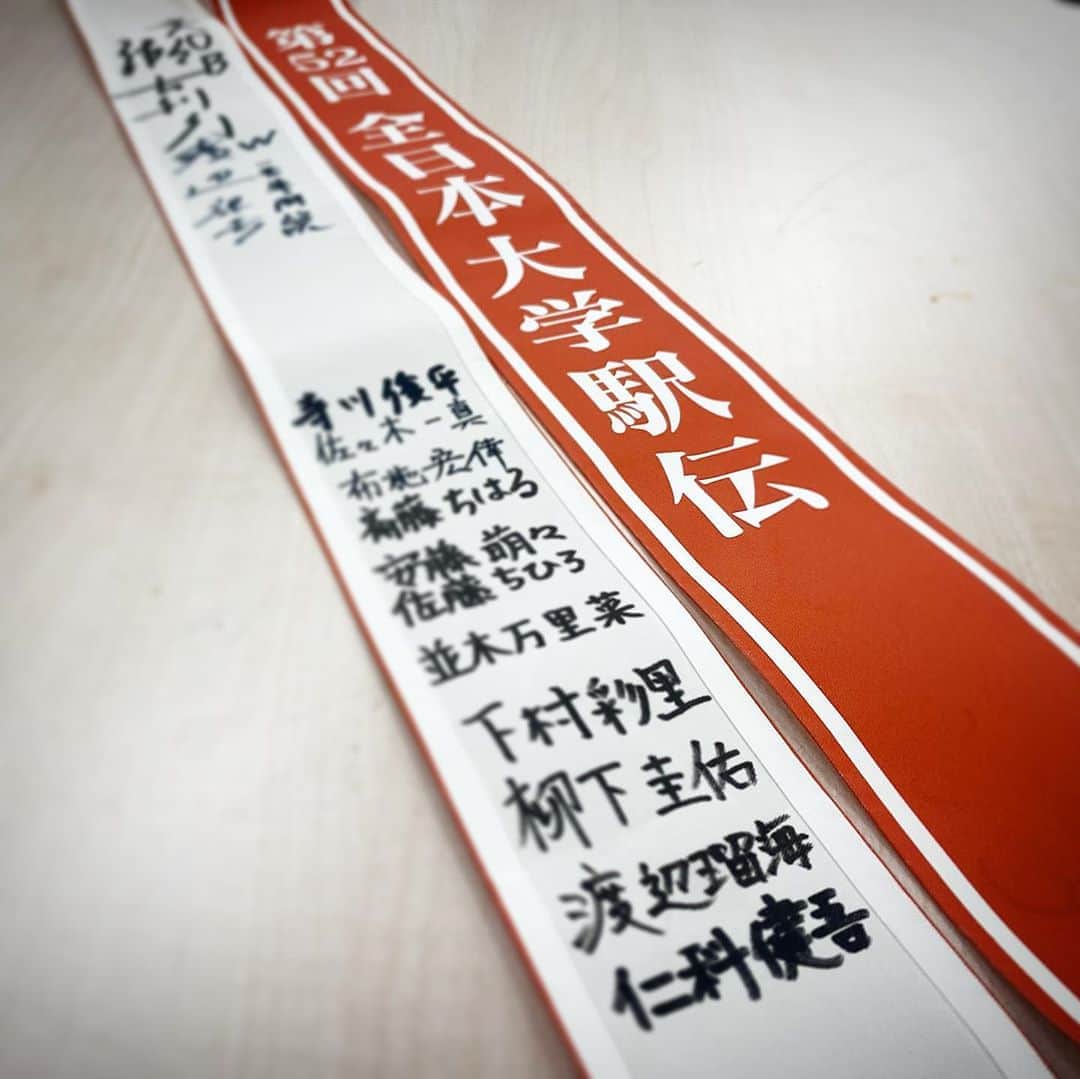 第
52
回
全日本大学駅伝
寺川俊平
佐々木一真
布施宏倖
斎藤ちはる
安藤萌々
佐藤ちひろ
並木万里菜
下村彩里
柳下圭佑
渡辺瑠海
仁科健吾